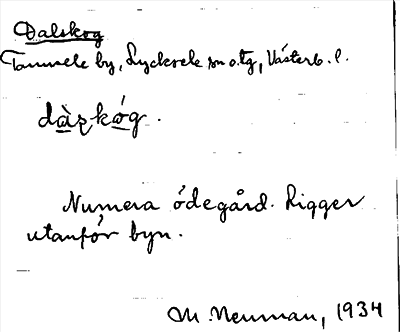 Dalskog
Tannsele by, Lycksele sn o. tg, Västerb. l.
dàɽskóg.
Numera ödegård. Ligger
utanför byn.
M. Neuman, 1934